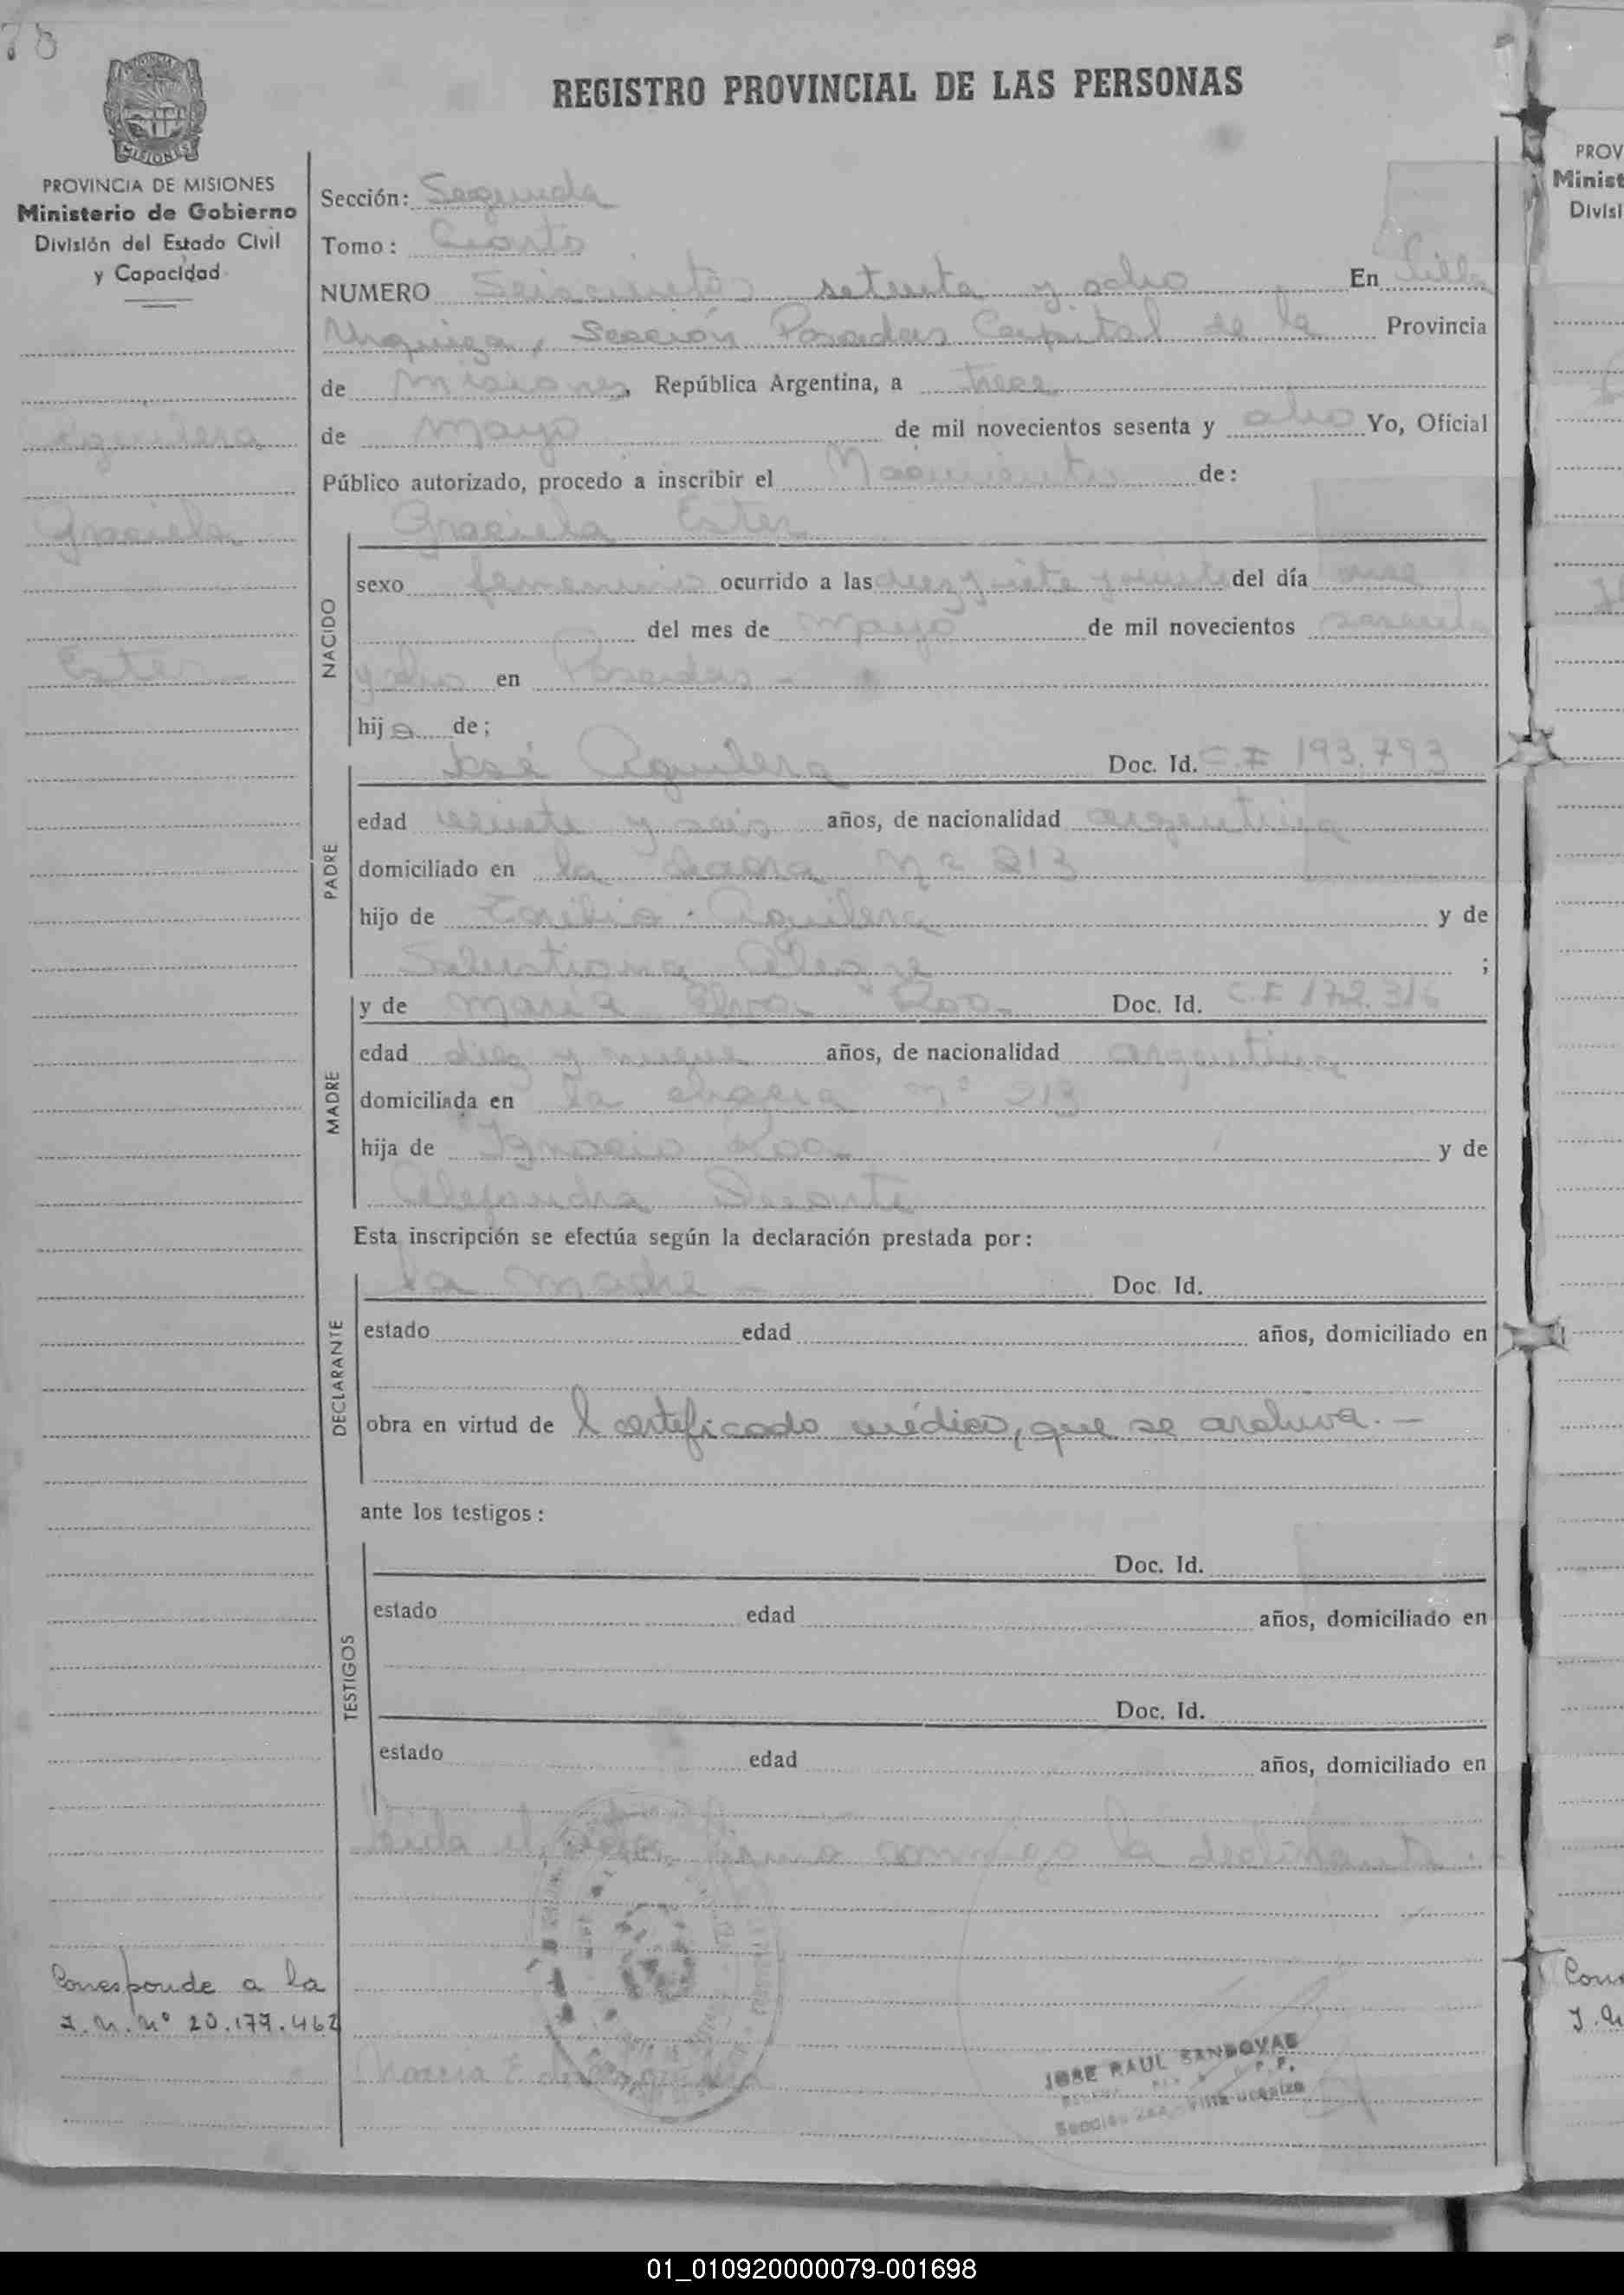 78
REGISTRO PROVINCIAL DE LAS PERSONAS
MISIONES
PROVINCIA DE MISIONES
Ministerio de Gobierno
División del Estado Civil
y Capacidad
Aguilera
Graciela
Ester
Sección: Segunda
Tomo: Cuarto
NUMERO Seiscientos setenta y ocho En Villa
Urquiza, Sección Posadas Capital de la Provincia
de Misiones, República Argentina, a trece
de mayo de mil novecientos sesenta y ocho Yo, Oficial
Público autorizado, procedo a inscribir el Nacimiento de:
Graciela Ester
NACIDO
sexo femenino ocurrido a las diez y siete y veinte del día once
del mes de mayo de mil novecientos sesenta
y ocho en Posadas -
hija de;
José Aguilera Doc. Id. C.I 193.793
PADRE
edad veinte y seis años, de nacionalidad argentina
domiciliado en la chacra Nº 213
hijo de Aguilera y de
Salustiana Alegre ;
y de María Elva Roa Doc. Id. C.I 172.316
MADRE
edad diez y nueve años, de nacionalidad argentina
domiciliada en la chacra nº 213
hija de Ignacio Roa y de
Alejandra Duarte
Esta inscripción se efectúa según la declaración prestada por:
la madre - Doc. Id.
DECLARANTE
estado edad años, domiciliado en
obra en virtud de l certificado médico, que se archiva. -
ante los testigos:
TESTIGOS
Doc. Id.
estado edad años, domiciliado en
Doc. Id.
estado edad años, domiciliado en
Leída el acta, firma conmigo la declarante.
Corresponde a la
I.M.Nº 20.177.462
María E. de
JOSE RAUL SANDOVAL
Sección 2da. Villa Urquiza
PROV
Minist
Divisi
01_010920000079-001698